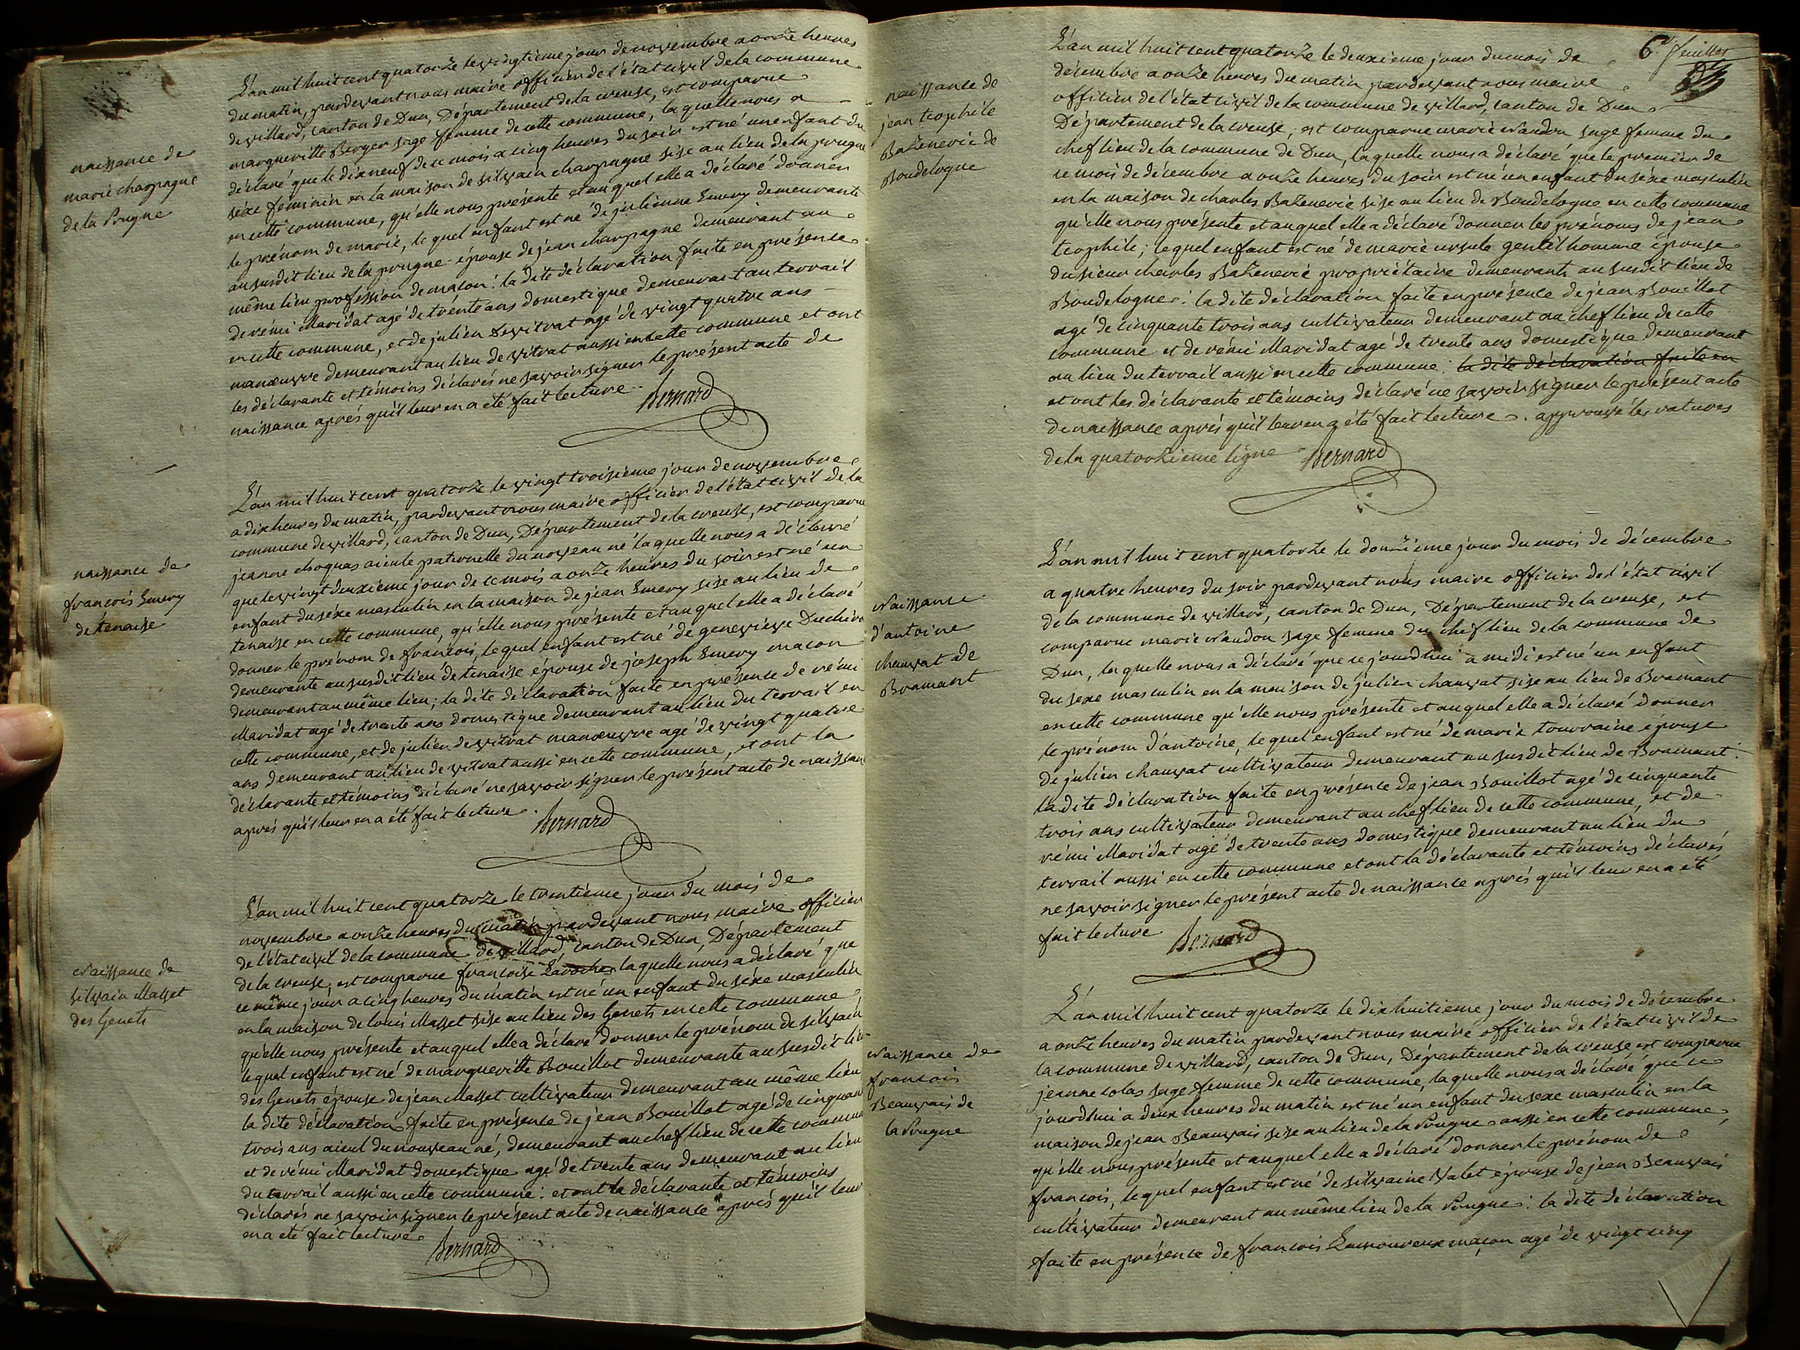 naissance de
marie champagne
de la Prugne
L'an mil huit cent quatorze le vingtieme jour de novembre a onze heures
du matin, pardevant nous maire officier de l'état civil de la commune
de villard, canton de Dun, Département de la creuse, est comparue
margueritte Berger sage femme de cette commune, la quelle nous a
déclaré que le dix neuf de ce mois a cinq heures du soir est né un enfant du
séxe feminin en la maison de silvain champagne sise au lieu de la prugne
en cette commune, qu'elle nous présente et auquel elle a déclaré donner
le prénom de marie, le quel enfant est né de julienne Emery demeurante
au susdit lieu de la prugne épouse de jean champagne demeurant au
même lieu profession de maçon: la dite déclaration faite en présence
de rémi Maridat agé de trente ans domestique demeurant au terrail
en cette commune, et de julien devitrat agé de vingt quatre ans
manœuvre demeurant au lieu de vitrat aussi en cette commune et ont
les déclarante et témoins déclarés ne savoir signer le présent acte de
naissance aprés qu'il leur en a été fait lecture. Bernard
naissance de
françois Emery
de tenaise
L'an mil huit cent quatorze le vingt troisieme jour de novembre
a dix heures du matin, pardevant nous maire officier de l'état civil de la
commune de villard, canton de Dun, Département de la creuse, est comparue
jeanne choquas aieule paternelle du nouveau né la quelle nous a déclaré
que le vingt deuxieme jour de ce mois a onze heures du soir est né un
enfant du séxe masculin en la maison de jean Emery sise au lieu de
tenaise en cette commune, qu'elle nous présente et auquel elle a déclaré
donner le prénom de francois, le quel enfant est né de genevieve
demeurante au susdit lieu de tenaise épouse de joseph Emery macon
demeurant au même lieu; la dite déclaration faite en présence de rémi
Maridat agé de trente ans domestique demeurant au lieu du terrail en
cette commune, et de julien devitrat manœuvre agé de vingt quatre
ans demeurant au lieu de vitrat aussi en cette commune, et ont la
déclarante et témoins déclaré ne savoir signer le présent acte de naissan
aprés qu'il leur en a été fait lecture. Bernard
Naissance de
silvain Masset
des Genets
L'an mil huit cent quatorze le trentieme jour du mois de
novembre a onze heures du matin pardevant nous maire officier
de l'état civil de la commune de villard, canton de Dun, Département
de la creuse, est comparue françoise Laroche, laquelle nous a déclaré que
ce même jour a cinq heures du matin est né un enfant du séxe masculin
en la maison de louis Masset sise au lieu des Genets en cette commune
qu'elle nous présente et auquel elle a déclaré donner le prénom de silvain
lequel enfant est né de margueritte Bouillot demeurante au susdit lieu
des Genets épouse de jean Masset cultivateur demeurant au même lieu
la dite déclaration faite en présence de jean Bouillot agé de cinquante
trois ans aieul du nouveau né, demeurant au chef lieu de cette commune
et de rémi Maridat domestique agé de trente ans demeurant au lieu
du terrail aussi en cette commune: et ont la déclarante et témoins
déclarés ne savoir signer le présent acte de naissance aprés qu'il leur
en a été fait lecture. Bernard
6e feuillet
naissance de
jean teophile
Bazenerie de
Boudelogne
L'an mil huit cent quatorze le deuxieme jour du mois de
décembre a onze heures du matin pardevant nous maire
officier de l'état civil de la commune de villard, canton de Dun
Département de la creuse, est comparue marie Nandon sage femme du
chef lieu de la commune de Dun, laquelle nous a déclaré que le premier de
ce mois de décembre a onze heures du soir est né un enfant du séxe masculin
en la maison de charles Bazenerie sise au lieu de Boudelogne en cette commune
qu'elle nous présente et auquel elle a déclaré donner les prénoms de jean
teophile; lequel enfant est né de marie ursule gentil homme épouse
du sieur charles Bazenerie propriétaire demeurante au susdit lieu de
Boudelogne: la dite déclaration faite en présence de jean Bouillot
agé de cinquante trois ans cultivateur demeurant au chef lieu de cette
commune et de rémi Maridat agé de trente ans domestique demeurant
au lieu du terrail aussi en cette commune: la dite déclaration faite en
et ont les déclarante et témoins déclaré ne savoir signer le présent acte
de naissance aprés qu'il leur en a été fait lecture. approuvé les ratures
de la quatorzieme ligne Bernard
Naissance
d'antoine
chauvat de
Bramant
L'an mil huit cent quatorze le douzieme jour du mois de décembre
a quatre heures du soir pardevant nous maire officier de l'état civil
de la commune de villard, canton de Dun, Département de la creuse, est
comparue marie Nandon sage femme du chef lieu de la commune de
Dun, laquelle nous a déclaré que ce jourd'hui a midi est né un enfant
du sexe masculin en la maison de julien chauvat sise au lieu de Bramant
en cette commune qu'elle nous présente et auquel elle a déclaré donner
le prénom d'antoine, lequel enfant est né de marie tourraine épouse
de julien chauvat cultivateur demeurant au susdit lieu de Bramant:
la dite déclaration faite en présence de jean Bouillot agé de cinquante
trois ans cultivateur demeurant au chef lieu de cette commune, et de
rémi Maridat agé de trente ans domestique demeurant au lieu du
terrail aussi en cette commune et ont la déclarante et témoins déclarés
ne savoir signer le présent acte de naissance aprés qu'il leur en a été
fait lecture Bernard
Naissance de
francois
Beauvais de
la Prugne
L'an mil huit cent quatorze le dix huitieme jour du mois de décembre
a onze heures du matin pardevant nous maire officier de l'état civil de
la commune de villard, canton de Dun, Département de la creuse est comparue
jeanne colas sage femme de cette commune, la quelle nous a déclaré que ce
jourdhui a deux heures du matin est né un enfant du sexe masculin en la
maison de jean Beauvais sise au lieu de la Prugne aussi en cette commune,
qu'elle nous présente et auquel elle a déclaré donner le prénom de
françois, lequel enfant est né de silvaine Valet épouse de jean Beauvais
cultivateur demeurant au même lieu de la Prugne: la dite déclaration
faite en présence de francois Lamoureux maçon agé de vingt cinq